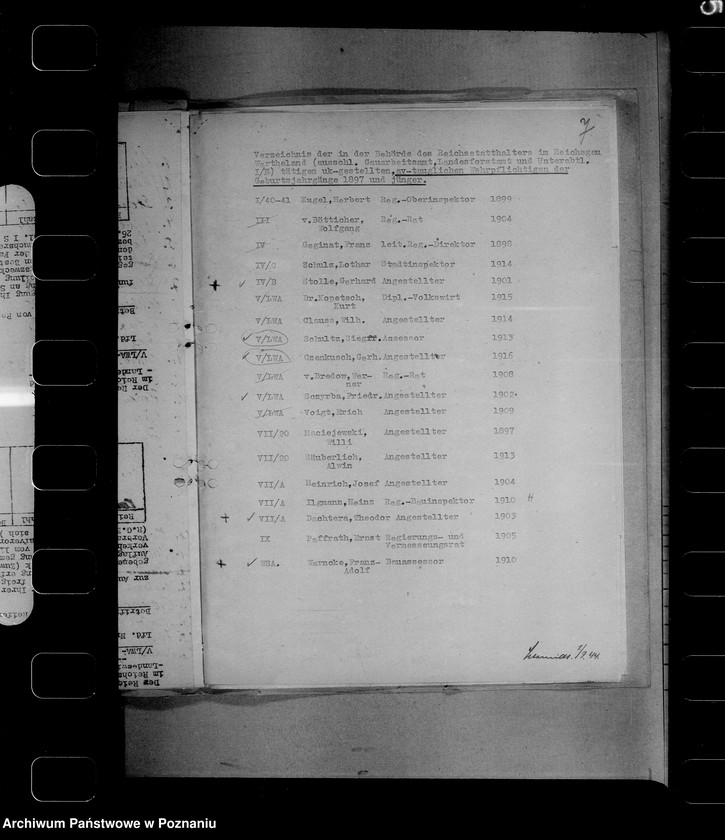 7
Verzeichnis der in der Behörde des Reichsstatthalters im Reichsgau
Wartheland (ausschl. Gauarbeitsamt, Landesforstamt und Unterabtl.
I/S) tätigen uk-gestellten, av-tauglichen Wehrpflichtigen der
Geburtsjahrgänge 1897 und jünger.
I/40-41 Engel, Herbert Reg.-Oberinspektor 1899
III v. Bötticher, Reg.-Rat 1904
Wolfgang
IV Geginat, Franz leit. Reg.-Direktor 1898
IV/C Schulz, Lothar Stadtinspektor 1914
+ ✓ IV/B Stolle, Gerhard Angestellter 1901
V/LWA Dr. Kopetsch, Dipl.-Volkswirt 1915
Kurt
V/LWA Clauss, Wilh. Angestellter 1914
✓ V/LWA Schultz, Siegfr. Assessor 1913
✓ V/LWA Czenkusch, Gerh. Angestellter 1916
V/LWA v. Bredow, Wer- Reg.-Rat 1908
ner
✓ V/LWA Sczyrba, Friedr. Angestellter 1902
V/LWA Voigt, Erich Angestellter 1909
VII/20 Maciejewski, Angestellter 1897
Willi
VII/20 Häuberlich, Angestellter 1913
Alwin
VII/A Heinrich, Josef Angestellter 1904
VII/A Ilgmann, Heinz Reg.-Bauinspektor 1910 H
+ ✓ VII/A Dachtera, Theodor Angestellter 1903
IX Paffrath, Ernst Regierungs- und 1905
Vermessungsrat
+ ✓ WSA. Warncke, Franz- Bauassessor 1910
Adolf
Archiwum Państwowe w Poznaniu